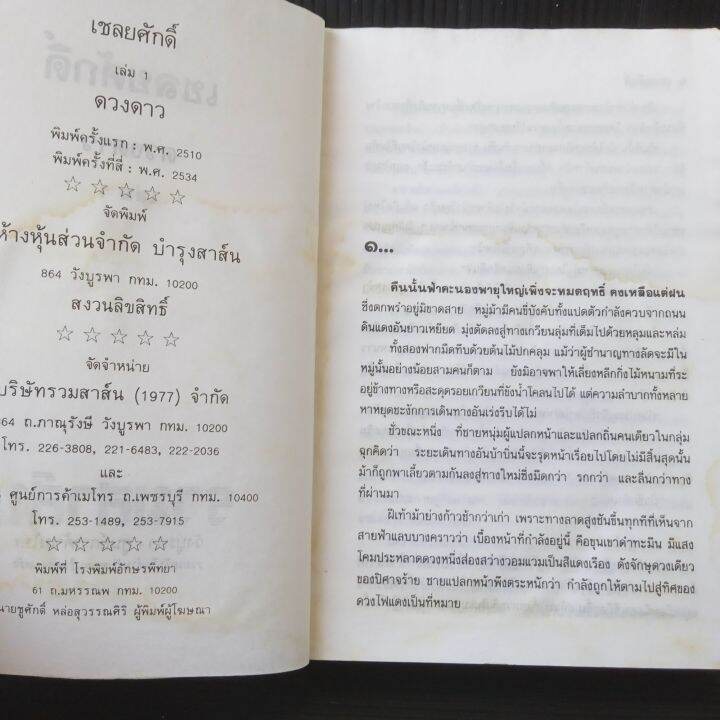 เชลยศักดิ์
เล่ม 1
ดวงดาว
พิมพ์ครั้งแรก : พ.ศ. 2510
พิมพ์ครั้งที่สี่ : พ.ศ. 2534
☆ ☆ ☆ ☆ ☆
จัดพิมพ์
ห้างหุ้นส่วนจำกัด บำรุงสาส์น
864 วังบูรพา กทม. 10200
สงวนลิขสิทธิ์
☆ ☆ ☆ ☆ ☆
จัดจำหน่าย
บริษัทรวมสาส์น (1977) จำกัด
864 ถ.ภาณุรังษี วังบูรพา กทม. 10200
โทร. 226-3808, 221-6483, 222-2036
และ
ศูนย์การค้าเมโทร ถ.เพชรบุรี กทม. 10400
โทร. 253-1489, 253-7915
☆ ☆ ☆ ☆ ☆
พิมพ์ที่ โรงพิมพ์อักษรพิทยา
61 ถ.มหรรณพ กทม. 10200
นายชูศักดิ์ หล่อสุวรรณศิริ ผู้พิมพ์ผู้โฆษณา
๑...
คืนนั้นฟ้าคะนองพายุใหญ่เพิ่งจะหมดฤทธิ์ คงเหลือแต่ฝน
ซึ่งตกพรำอยู่มิขาดสาย หมู่ม้ามีคนขี่บังคับทั้งแปดตัวกำลังควบจากถนน
ดินแดงอันยาวเหยียด มุ่งตัดลงสู่ทางเกวียนลุ่มที่เต็มไปด้วยหลุมและหล่ม
ทั้งสองฟากมืดทึบด้วยต้นไม้ปกคลุม แม้ว่าผู้ชำนาญทางลัดจะมีใน
หมู่นั้นอย่างน้อยสามคนก็ตาม ยังมิอาจพาให้เลี่ยงหลีกกิ่งไม้หนามที่ระ
อยู่ข้างทางหรือสะดุดรอยเกวียนที่ขังน้ำโคลนไปได้ แต่ความลำบากทั้งหลาย
หาหยุดชะงักการเดินทางอันเร่งรีบได้ไม่
ชั่วขณะหนึ่ง ที่ชายหนุ่มผู้แปลกหน้าและแปลกถิ่นคนเดียวในกลุ่ม
ฉุกคิดว่า ระยะเดินทางอันบ้าบิ่นนี้จะรุดหน้าเรื่อยไปโดยไม่มีสิ้นสุดนั้น
ม้าก็ถูกพาเลี้ยวตามกันลงสู่ทางใหม่ซึ่งมืดกว่า รกกว่า และลื่นกว่าทาง
ที่ผ่านมา
ฝีเท้าม้าย่างก้าวช้ากว่าเก่า เพราะทางลาดสูงชันขึ้นทุกทีที่เห็นจาก
สายฟ้าแลบบางคราวว่า เบื้องหน้าที่กำลังอยู่นี้ คือขุนเขาดำทะมึน มีแสง
โคมประหลาดดวงหนึ่งส่องสว่างวอมแวมเป็นสีแดงเรื่อง ดังจักษุดวงเดียว
ของปีศาจร้าย ชายแปลกหน้าพึงตระหนักว่า กำลังถูกให้ตามไปสู่ทิศของ
ดวงไฟแดงเป็นที่หมาย